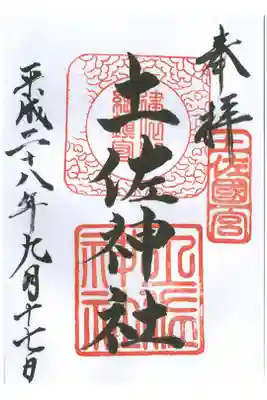 奉拝
土佐國一宮
土佐神社
土佐神社
平成二十八年九月十七日